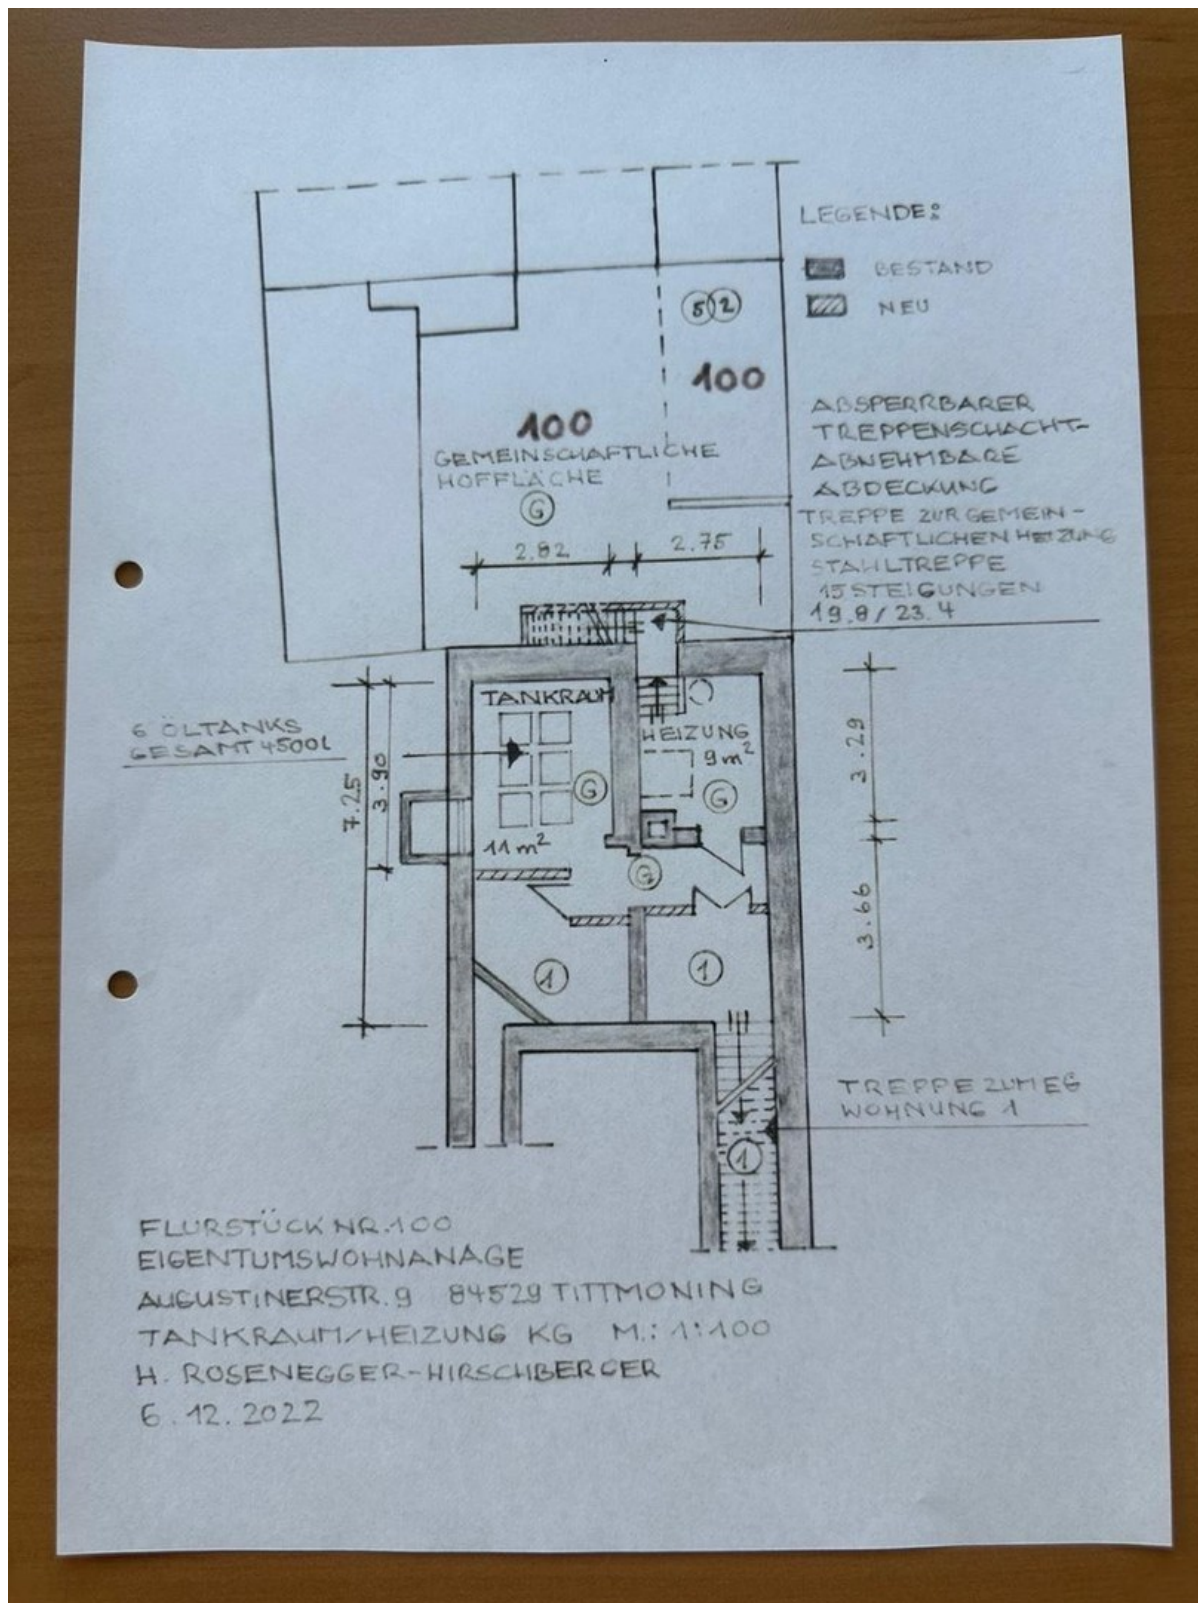 LEGENDE:
BESTAND
NEU
5 2
100
100
GEMEINSCHAFTLICHE
HOFFLÄCHE
G
ABSPERRBARER
TREPPENSCHACHT-
ABNEHMBARE
ABDECKUNG
TREPPE ZUR GEMEIN-
SCHAFTLICHEN HEIZUNG
STAHLTREPPE
15 STEIGUNGEN
19.8 / 23.4
2.82
2.75
TANKRAUM
6 ÖLTANKS
GESAMT 4500L
HEIZUNG
9 m²
G
G
11 m²
G
7.25
3.90
3.29
3.66
1
1
TREPPE ZUM EG
WOHNUNG 1
1
FLURSTÜCK NR. 100
EIGENTUMSWOHNANAGE
AUGUSTINERSTR. 9 84529 TITTMONING
TANKRAUM/HEIZUNG KG M.: 1:100
H. ROSENEGGER-HIRSCHBERGER
6.12.2022